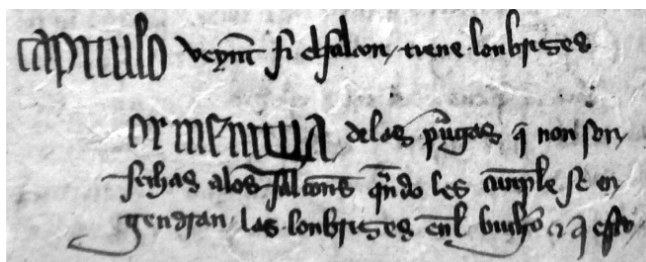 capitulo veynt̃ si el falcon tiene lonbrizes
or mengua delas pũgas q̃ non son
fechas alos falcones qñdo les cunple se en
gendran las lonbrizes enl buch̃o ⁊ q̃ esto